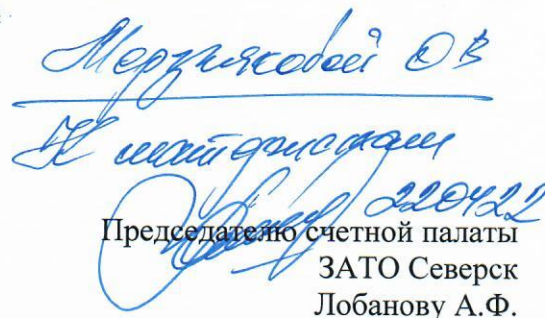 Мерзляковой ОВ
К материалам
220422
Председателю счетной палаты
ЗАТО Северск
Лобанову А.Ф.